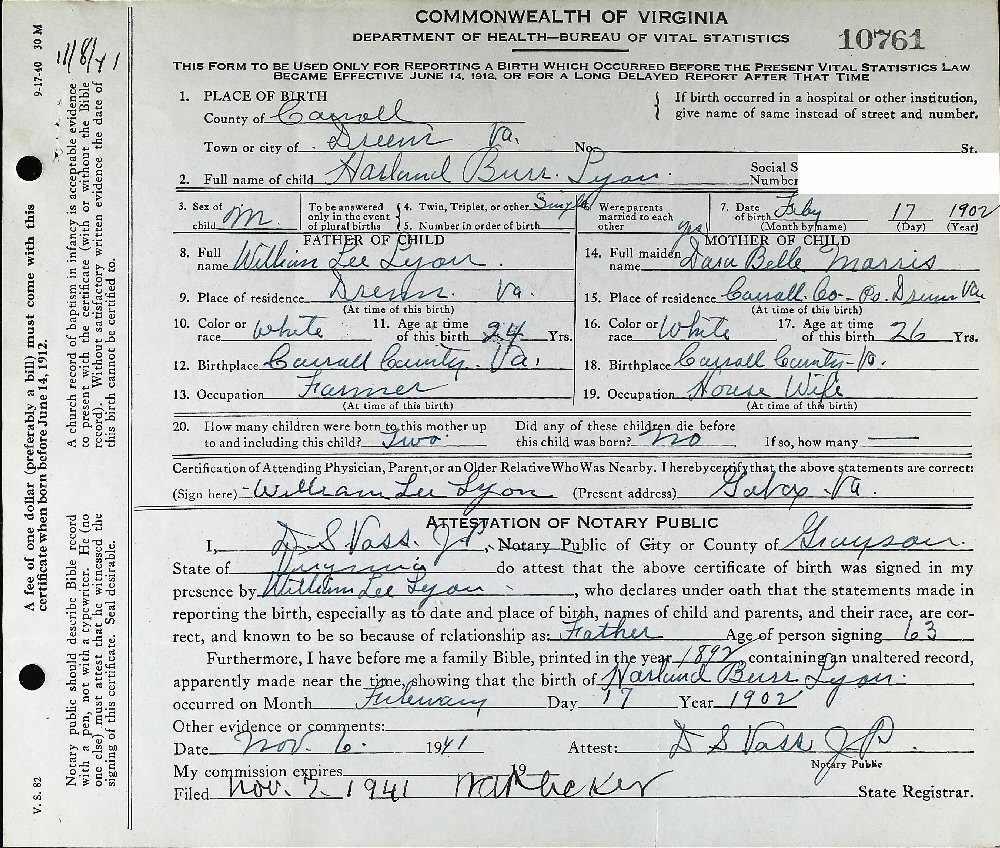 COMMONWEALTH OF VIRGINIA
DEPARTMENT OF HEALTH—BUREAU OF VITAL STATISTICS
10761
THIS FORM TO BE USED ONLY FOR REPORTING A BIRTH WHICH OCCURRED BEFORE THE PRESENT VITAL STATISTICS LAW
BECAME EFFECTIVE JUNE 14, 1912, OR FOR A LONG DELAYED REPORT AFTER THAT TIME
1. PLACE OF BIRTH
County of Carroll
If birth occurred in a hospital or other institution,
give name of same instead of street and number.
Town or city of Drenn Va. No. St.
2. Full name of child Harland Burr Lyon. Social S
Number
3. Sex of child M To be answered only in the event of plural births 4. Twin, Triplet, or other Single
5. Number in order of birth
6. Were parents married to each other yes
7. Date of birth Feby 17 1902
(Month by name) (Day) (Year)
FATHER OF CHILD
8. Full name William Lee Lyon.
9. Place of residence Drenn. Va.
(At time of this birth)
10. Color or race white 11. Age at time of this birth 24 Yrs.
12. Birthplace Carroll County. Va.
13. Occupation Farmer
(At time of this birth)
MOTHER OF CHILD
14. Full maiden name Dara Belle Morris
15. Place of residence Carroll Co- Drenn Va
(At time of this birth)
16. Color or race White 17. Age at time of this birth 26 Yrs.
18. Birthplace Carroll County- Va.
19. Occupation House Wife
(At time of this birth)
20. How many children were born to this mother up
to and including this child? Two. Did any of these children die before
this child was born? No If so, how many —
Certification of Attending Physician, Parent, or an Older Relative Who Was Nearby. I hereby certify that the above statements are correct:
(Sign here) William Lee Lyon (Present address) Galax Va.
ATTESTATION OF NOTARY PUBLIC
I, D S Vass. J.P., Notary Public of City or County of Grayson.
State of Virginia do attest that the above certificate of birth was signed in my
presence by William Lee Lyon, who declares under oath that the statements made in
reporting the birth, especially as to date and place of birth, names of child and parents, and their race, are cor-
rect, and known to be so because of relationship as: Father Age of person signing 63
Furthermore, I have before me a family Bible, printed in the year 1892 containing an unaltered record,
apparently made near the time, showing that the birth of Harland Burr Lyon.
occurred on Month Febuary Day 17 Year 1902
Other evidence or comments:
Date Nov. 6. 1941 Attest: D S Vass J.P.
Notary Public
My commission expires 19
Filed Nov. 7 1941 State Registrar.
9-17-40 30 M
11/8/41
A fee of one dollar (preferably a bill) must come with this
certificate when born before June 14, 1912.
A church record of baptism in infancy is acceptable evidence
to present with the certificate (with or without the Bible
record). Without satisfactory written evidence the date of
this birth cannot be certified to.
Notary public should describe Bible record
with a pen, not with a typewriter. He (no
one else) must attest that he witnessed the
signing of this certificate. Seal desirable.
V. S. 82